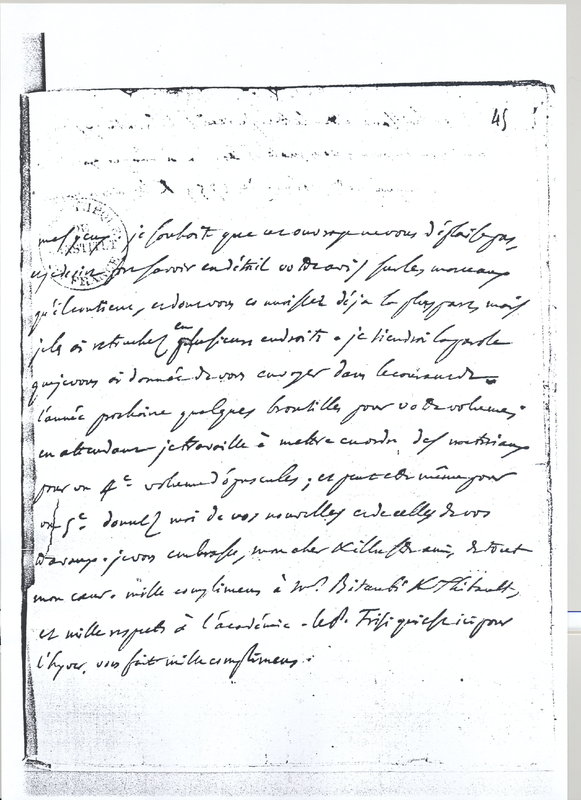 45
BIBLIOTHEQUE DE L'INSTITUT FRANCE
mes yeux. je souhaite que cet ouvrage ne vous déplaise pas,
et je desire fort savoir en détail votre avis sur les morceaux
qu'il contient, et dont vous connoissez déja la pluspart, mais
je les ai retouchez en plusieurs endroits. je tiendrai la parole
que je vous ai donnée de vous envoyer dans le courant de
l'année prochaine quelques broutilles pour votre volume;
en attendant je travaille à mettre en ordre des materiaux
pour un 4e. volume d'opuscules; et peut etre même pour
un 5e. donnez moi de vos nouvelles et de celles de vos
travaux. je vous embrasse, mon cher & illustre ami, de tout
mon cœur. mille complimens à Mrs. Bitaubé & Thibault,
et mille respects à l'académie. le P. Frisi qui est ici pour
l'hyver, vous fait mille complimens.